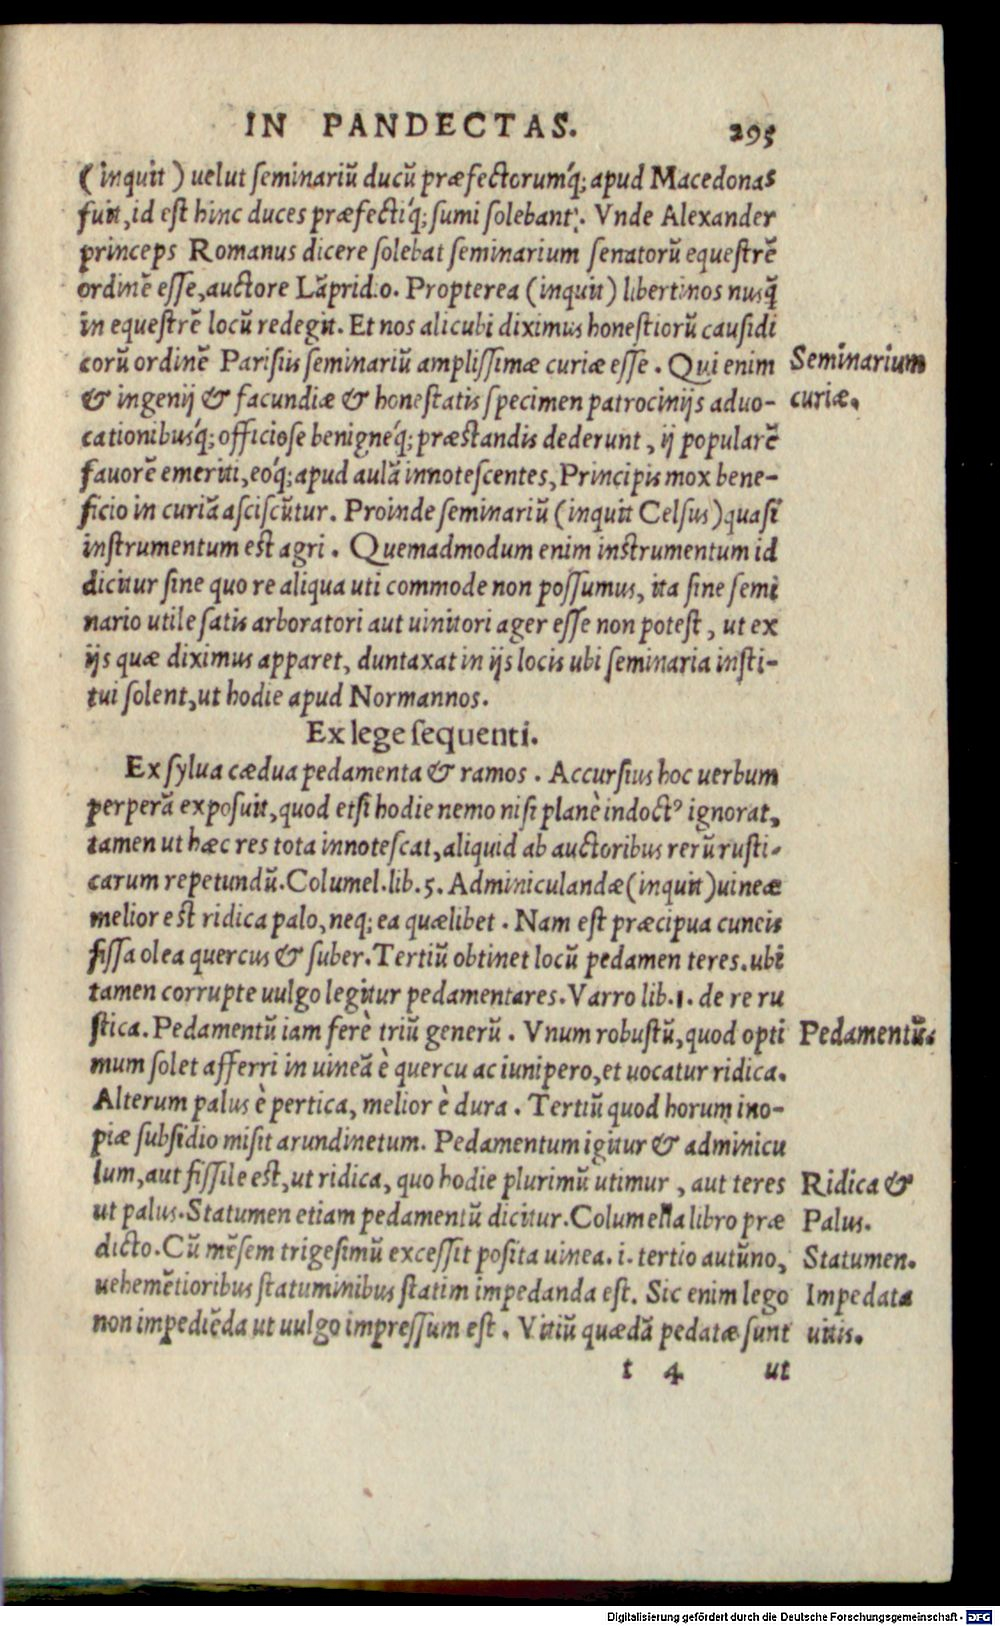 IN PANDECTAS. 295
(inquit) uelut seminariũ ducũ præfectorumq́; apud Macedonas
fuit, id est hinc duces præfectiq́; sumi solebant. Vnde Alexander
princeps Romanus dicere solebat seminarium senatorũ equestrẽ
ordinẽ esse, auctore Lãprid.o. Propterea (inquit) libertinos nusq̃
in equestrẽ locũ redegit. Et nos alicubi diximus honestiorũ causidi
corũ ordinẽ Parisiis seminariũ amplissimæ curiæ esse. Qui enim
Seminarium
& ingenij & facundiæ & honestatis specimen patrocinijs aduo-
curiæ.
cationibusq́; officiose benigneq́; præstandis dederunt, ij popularẽ
fauorẽ emeriti, eoq́; apud aulã innotescentes, Principis mox bene-
ficio in curiã asciscũtur. Proinde seminariũ (inquit Celsus) quasi
instrumentum est agri. Quemadmodum enim instrumentum id
dicitur sine quo re aliqua uti commode non possumus, ita sine semi
nario utile satis arboratori aut uinitori ager esse non potest, ut ex
ijs quæ diximus apparet, duntaxat in ijs locis ubi seminaria insti-
tui solent, ut hodie apud Normannos.
Ex lege sequenti.
Ex sylua cædua pedamenta & ramos. Accursius hoc uerbum
perperã exposuit, quod etsi hodie nemo nisi planè indoctꝰ ignorat,
tamen ut hæc res tota innotescat, aliquid ab auctoribus rerũ rusti-
carum repetundũ. Columel. lib. 5. Adminiculandæ (inquit) uineæ
melior est ridica palo, neq; ea quælibet. Nam est præcipua cuneis
fissa olea quercus & suber. Tertiũ obtinet locũ pedamen teres. ubi
tamen corrupte uulgo legitur pedamentares. Varro lib. 1. de re ru
stica. Pedamentũ iam ferè triũ generũ. Vnum robustũ, quod opti
Pedamentũ.
mum solet afferri in uineã è quercu ac iunipero, et uocatur ridica.
Alterum palus è pertica, melior è dura. Tertiũ quod horum ino-
piæ subsidio misit arundinetum. Pedamentum igitur & adminicu
lum, aut fissile est, ut ridica, quo hodie plurimũ utimur, aut teres
Ridica &
ut palus. Statumen etiam pedamentũ dicitur. Columella libro præ
Palus.
dicto. Cũ mẽsem trigesimũ excessit posita uinea. i. tertio autũno,
Statumen.
uehemẽtioribus statuminibus statim impedanda est. Sic enim lego
Impedata
non impediẽda ut uulgo impressum est. Vitiũ quædã pedatæ sunt
uitis.
t 4 ut
Digitalisierung gefördert durch die Deutsche Forschungsgemeinschaft - DFG